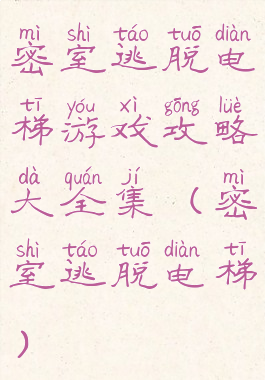 mì shì táo tuō diàn
密室逃脱电
tī yóu xì gōng lüè
梯游戏攻略
dà quán jí mì
大全集（密
shì táo tuō diàn tī
室逃脱电梯
）